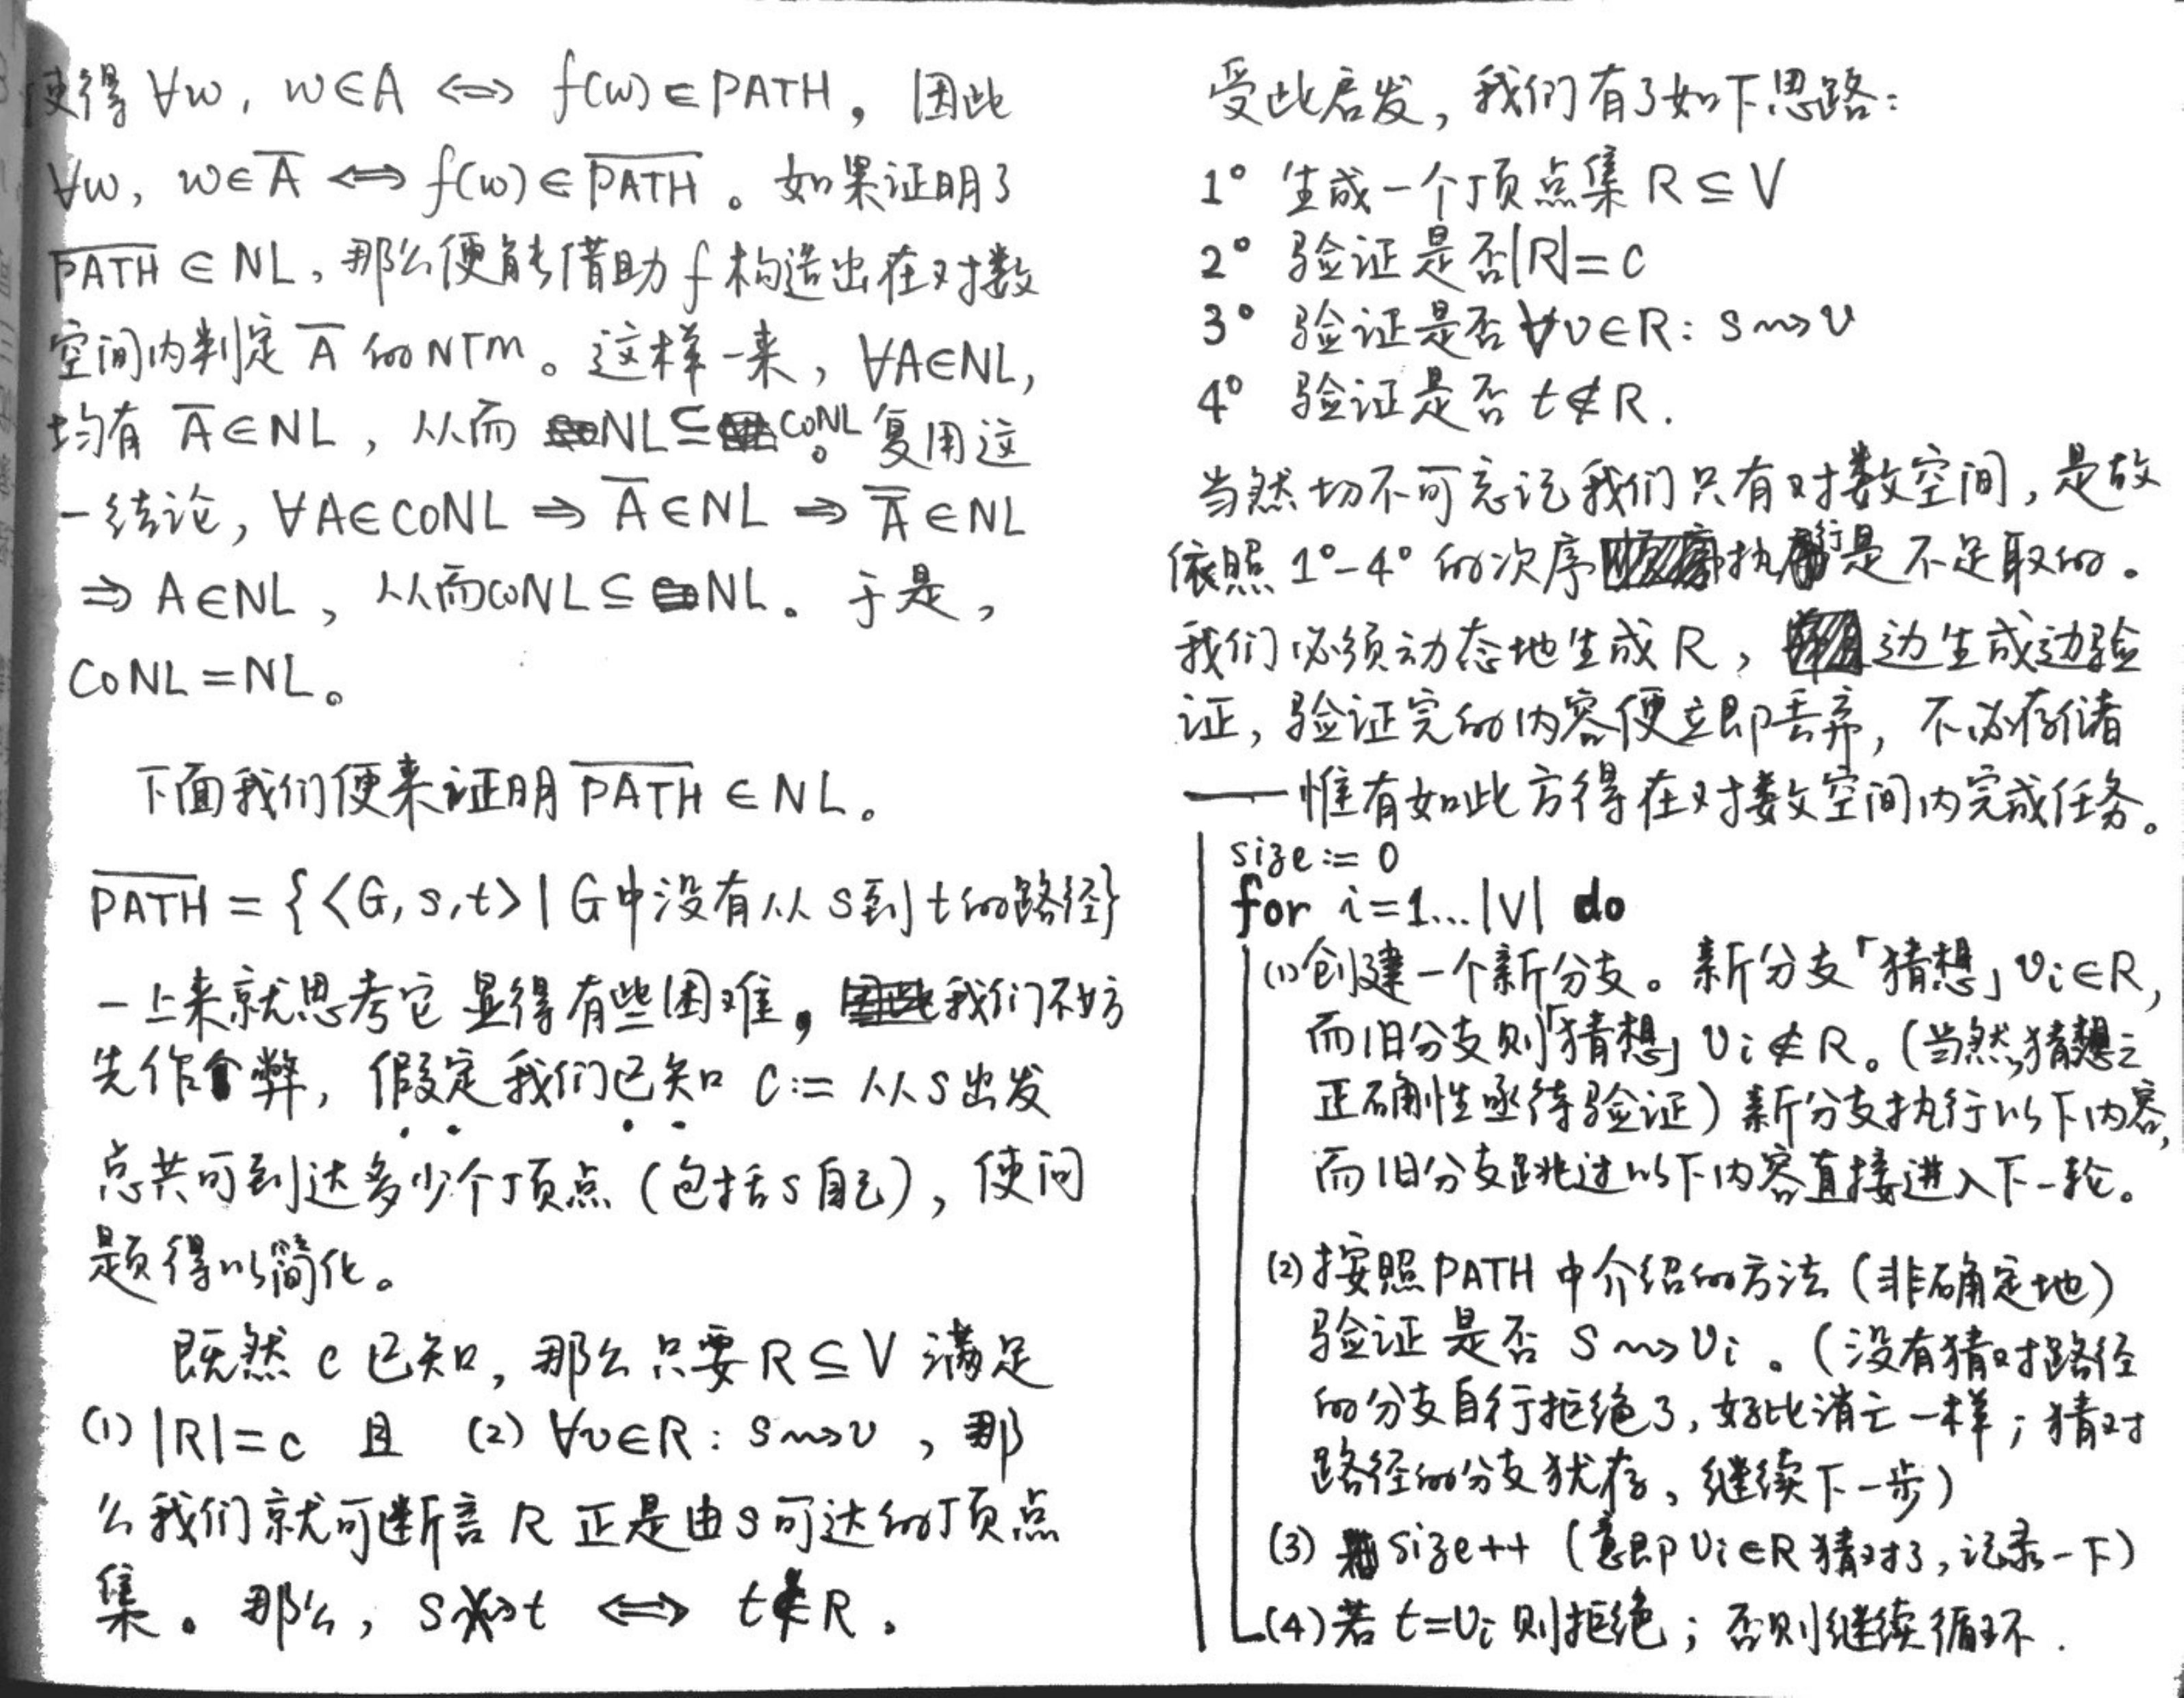 使得 ∀w, w∈A ⟺ f(w)∈PATH, 因此
∀w, w∈A̅ ⟺ f(w)∈P̅A̅T̅H̅。如果证明了
P̅A̅T̅H̅∈NL,那么便能借助f构造出在对数
空间内判定 A̅ 的NTM。这样一来,∀A∈NL,
均有 A̅∈NL,从而 NL⊆coNL。复用这
一结论,∀A∈coNL ⇒ A̅∈NL ⇒ A̿∈NL
⇒ A∈NL,从而coNL⊆NL。于是,
coNL=NL。
下面我们便来证明 P̅A̅T̅H̅∈NL。
P̅A̅T̅H̅ = {<G,s,t>|G中没有从s到t的路径}
一上来就思考它显得有些困难,我们不妨
先作个弊,假定我们已知 c:= 从s出发
总共可到达多少个顶点(包括s自己),使问
题得以简化。
既然c已知,那么只要R⊆V 满足
(1) |R|=c 且 (2) ∀v∈R: s⇝v,那
么我们就可断言R正是由s可达的顶点
集。那么,s⇝̸t ⟺ t∉R。
受此启发,我们有了如下思路:
1° 生成一个顶点集 R⊆V
2° 验证是否|R|=c
3° 验证是否∀v∈R: s⇝v
4° 验证是否 t∉R.
当然切不可忘记我们只有对数空间,是故
依照1°-4°的次序执行是不足取的。
我们必须动态地生成R,边生成边验
证,验证完的内容便立即丢弃,不必存储
——惟有如此方得在对数空间内完成任务。
size:= 0
for i=1...|V| do
(1)创建一个新分支。新分支「猜想」vi∈R,
而旧分支则「猜想」vi∉R。(当然,猜想之
正确性亟待验证)新分支执行以下内容,
而旧分支跳过以下内容直接进入下一轮。
(2)按照PATH中介绍的方法(非确定地)
验证是否 s⇝vi。(没有猜对路径
的分支自行拒绝了,好比消亡一样;猜对
路径的分支犹存,继续下一步)
(3) size++ (意即vi∈R猜对了,记录一下)
(4)若 t=vi 则拒绝;否则继续循环.